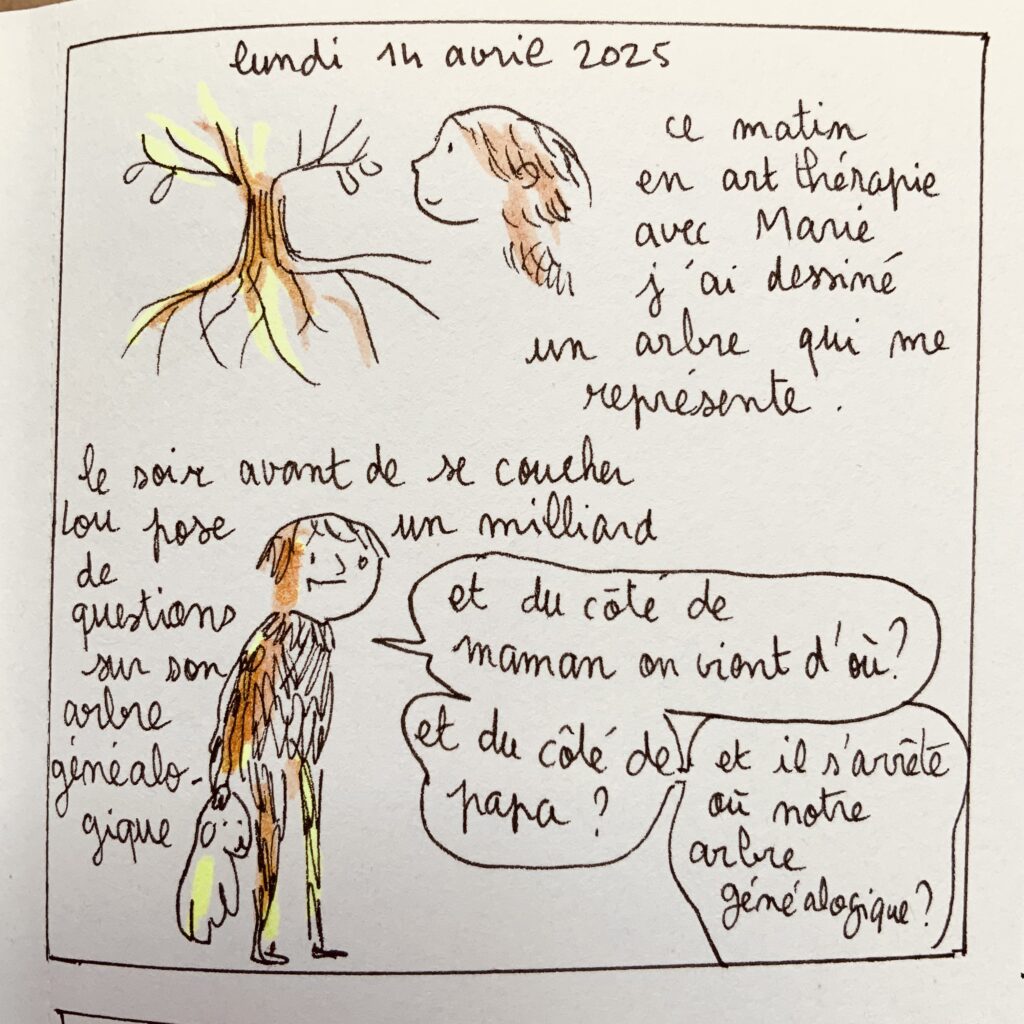 lundi 14 avril 2025
ce matin
en art thérapie
avec Marie
j'ai dessiné
un arbre qui me
représente.
le soir avant de se coucher
Lou pose un milliard
de
questions
sur son
arbre
généalo-
gique
et du côté de
maman on vient d'où?
et du côté de
papa ?
et il s'arrête
où notre
arbre
généalogique?